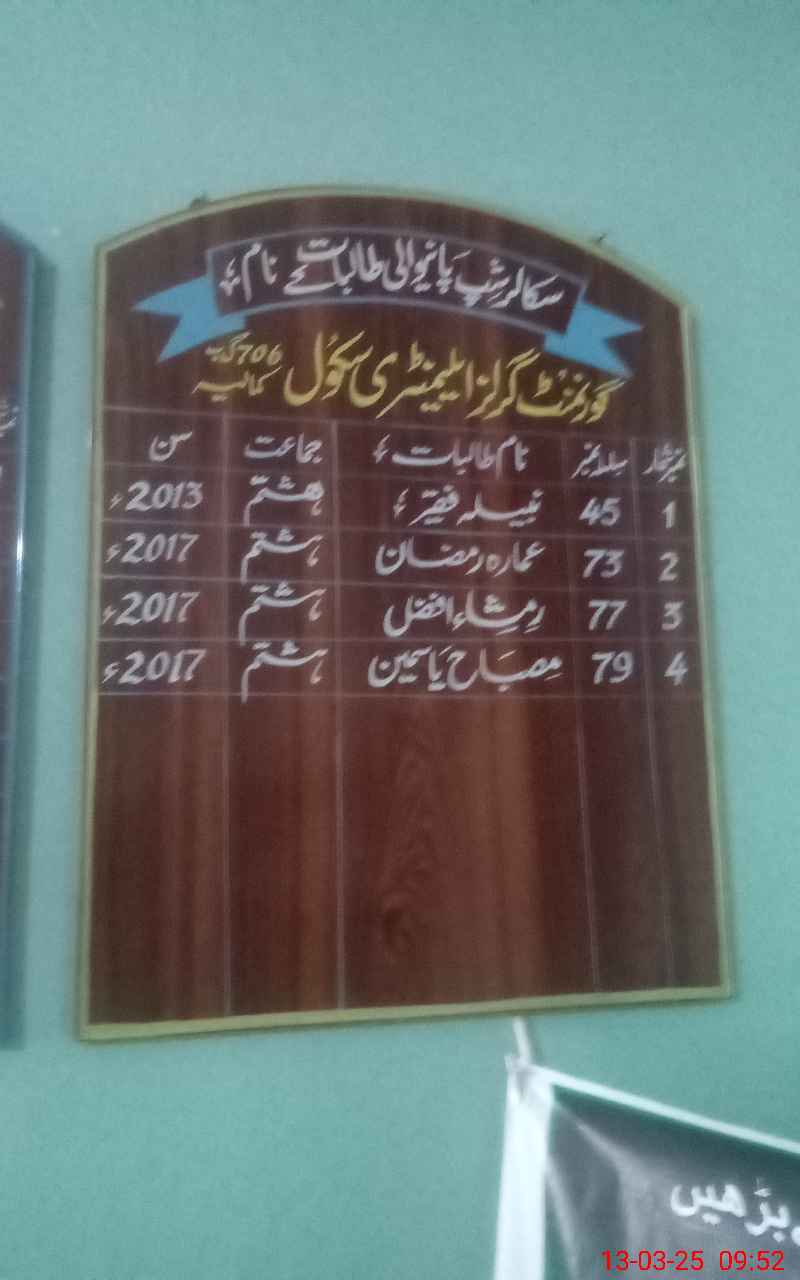 سکالرشپ پانیوالی طالبات کے نام
گورنمنٹ گرلز ایلیمنٹری سکول 706 گ ب کمالیہ
نمبر شمار سلسلہ نمبر نام طالبات جماعت سن
1 45 نبیلہ فقیر ہشتم 2013ء
2 73 عمارہ رمضان ہشتم 2017ء
3 77 رمشاء افضل ہشتم 2017ء
4 79 مصباح یاسمین ہشتم 2017ء
بڑھیں
13-03-25 09:52